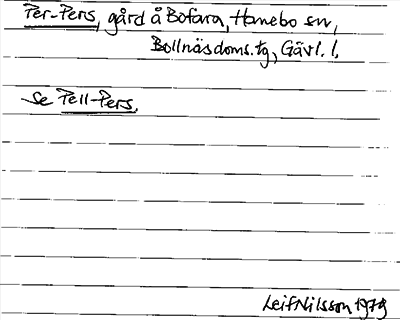 Per-Pers, gård å Bofara, Hanebo sn,
Bollnäs doms. tg, Gävl. l.
Se Pell-Pers.
Leif Nilsson 1979